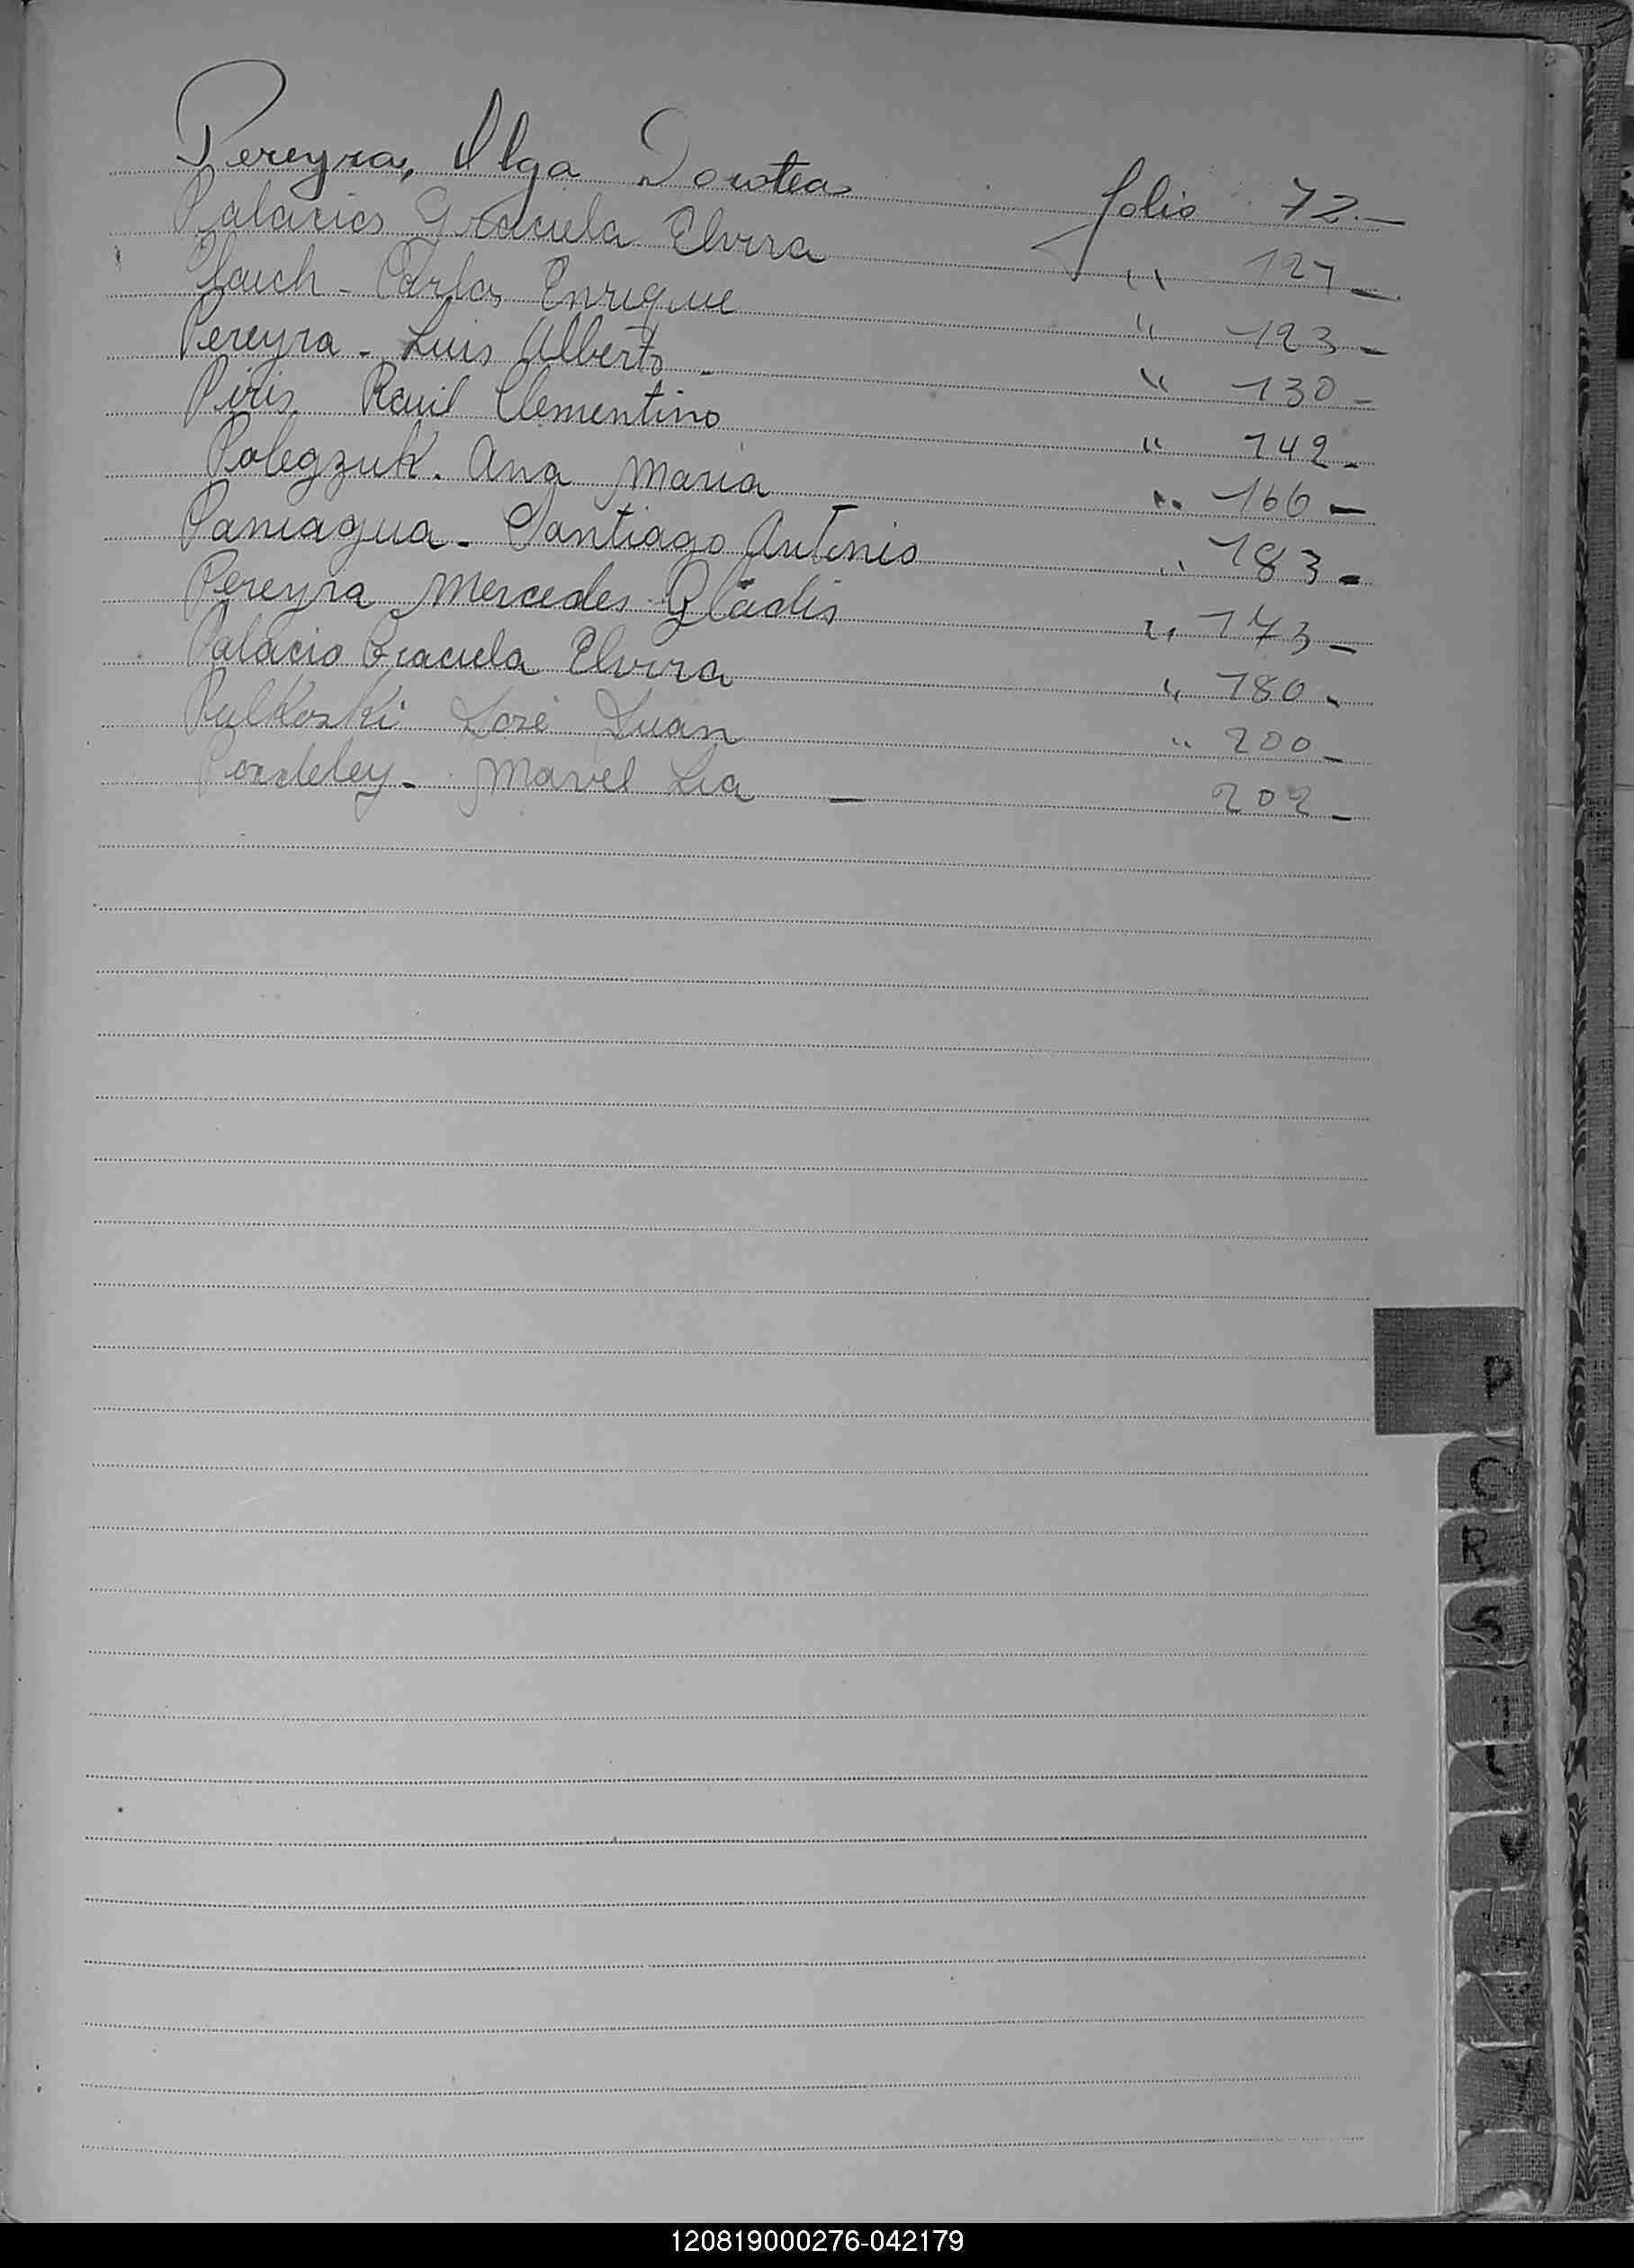 Pereyra, Olga Dorotea folio 72.—
Palacios Graciela Elvira " 127—.
Plauch - Carlos Enrique " 123-
Pereyra - Luis Alberto - " 130-
Piris, Raúl Clementino " 142-
Polegzuk. Ana María " 166-
Paniagua - Santiago Antonio " 183-
Pereyra Mercedes Gladis " 173-
Palacio Graciela Elvira " 180-
Pulkoski José Juan " 200-
Mavel Lia — 202-
P
C
R
S
120819000276-042179